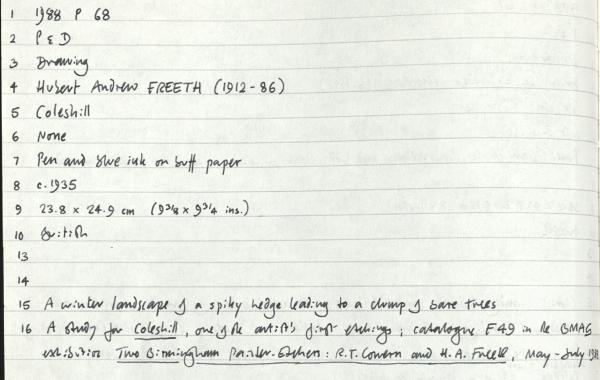 1 1988 P 68
2 P & D
3 Drawing
4 Hubert Andrew FREETH (1912-86)
5 Coleshill
6 None
7 Pen and blue ink on buff paper
8 c.1935
9 23.8 x 24.9 cm (9 3/8 x 9 3/4 ins.)
10 British
13
14
15 A winter landscape of a spiky hedge leading to a clump of bare trees
16 A study for Coleshill, one of the artist's first etchings; catalogue F49 in the BMAG
exhibition Two Birmingham Painter-Etchers: R.T. Cowern and H.A. Freeth, May-July